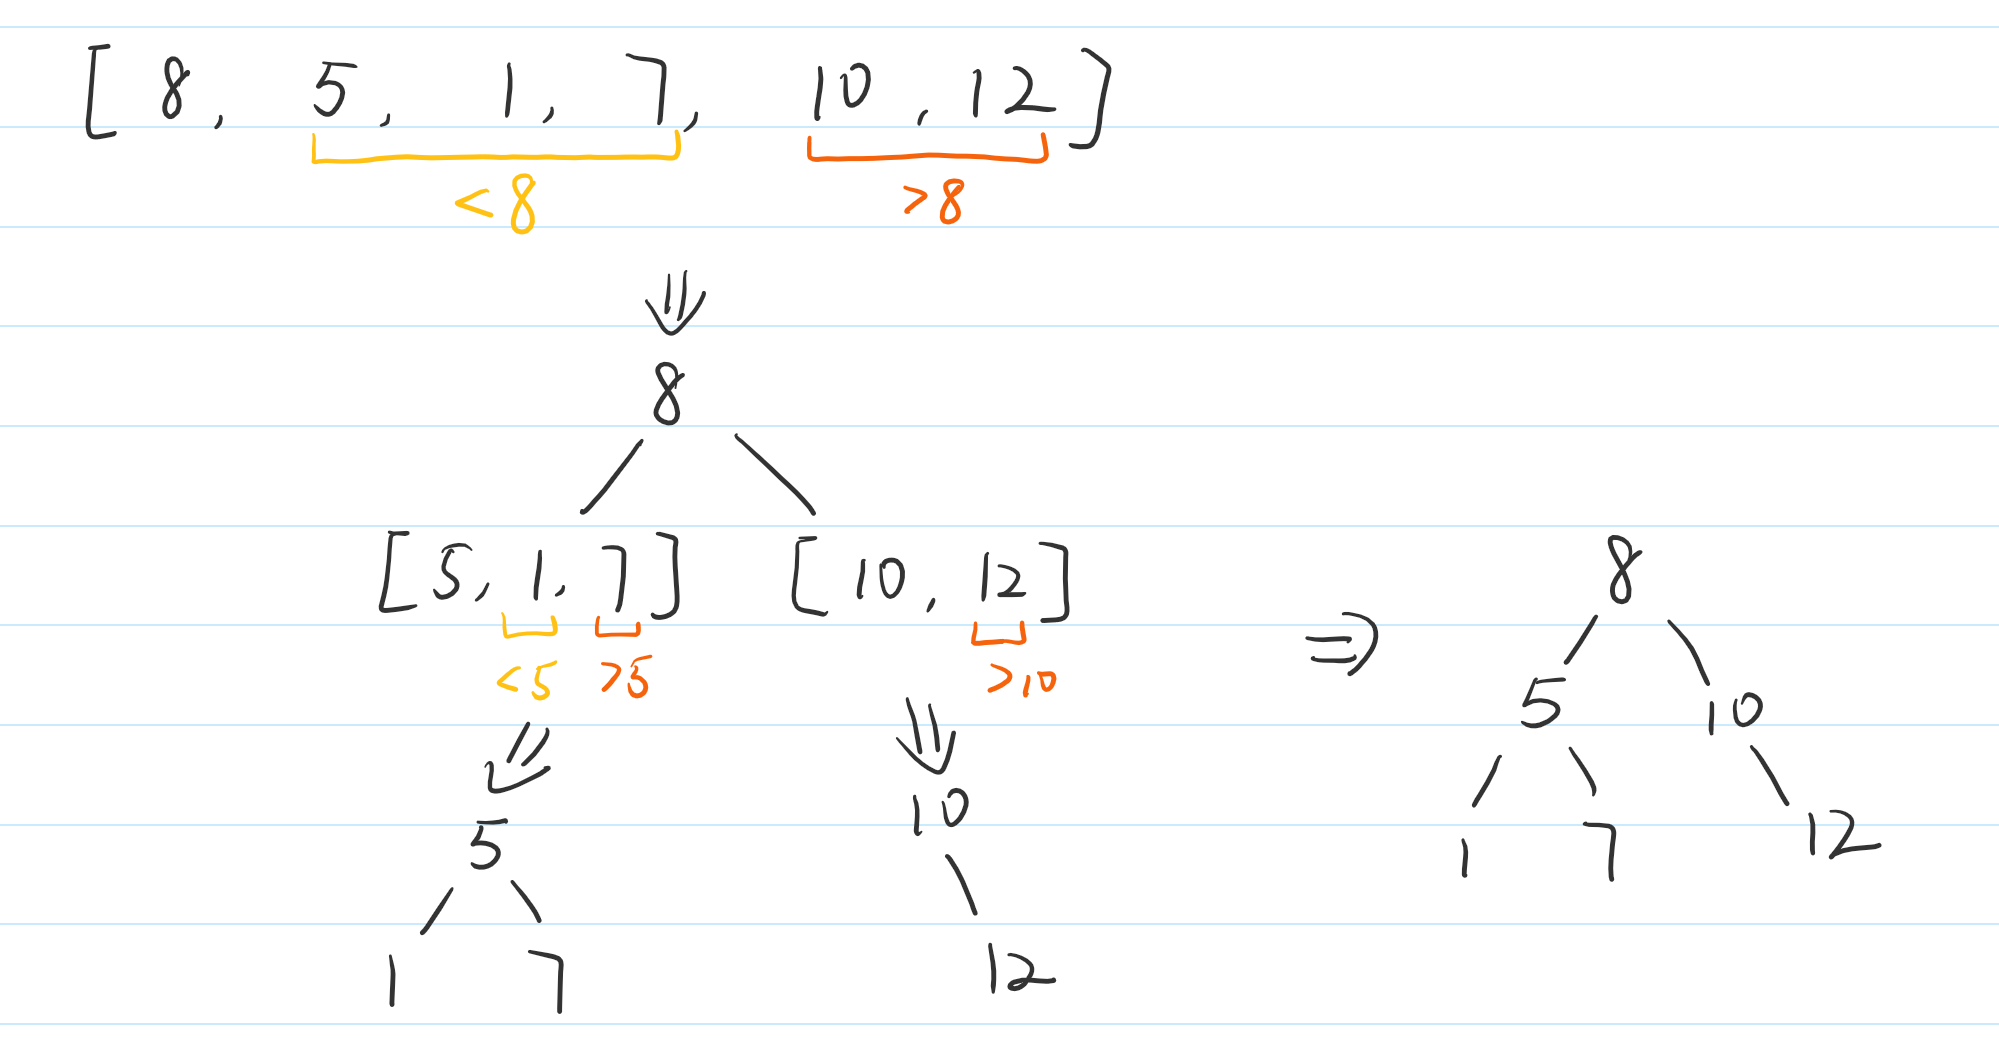 [ 8, 5, 1, 7, 10, 12 ]
< 8 > 8
⇓
8
[ 5, 1, 7 ] [ 10, 12 ]
< 5 > 5 > 10
⇓ ⇓
5 10
1 7 12
⇒
8
5 10
1 7 12